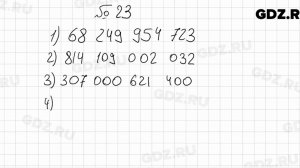 № 23
GDZ.RU
1) 68 249 954 723
2) 814 109 002 032
3) 307 000 621 400
4)